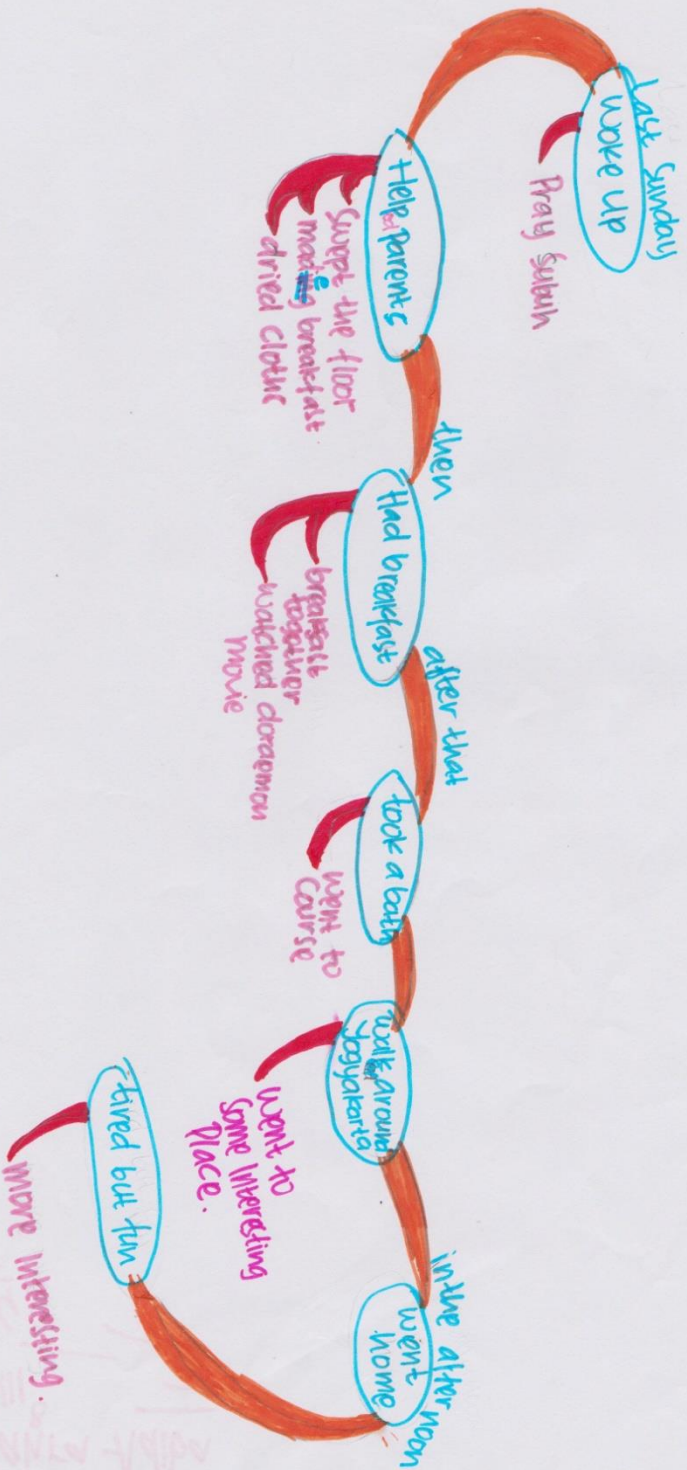 Last Sunday
Woke Up
Pray Subuh
Helped Parents
Swept the floor
made breakfast.
dried cloths
then
Had breakfast
breakfast
together
watched doraemon
movie
after that
took a bath
went to
Course
Walked around
Yogyakarta
went to
Some Interesting
Place.
in the after noon
went
home
tired but fun
more Interesting.